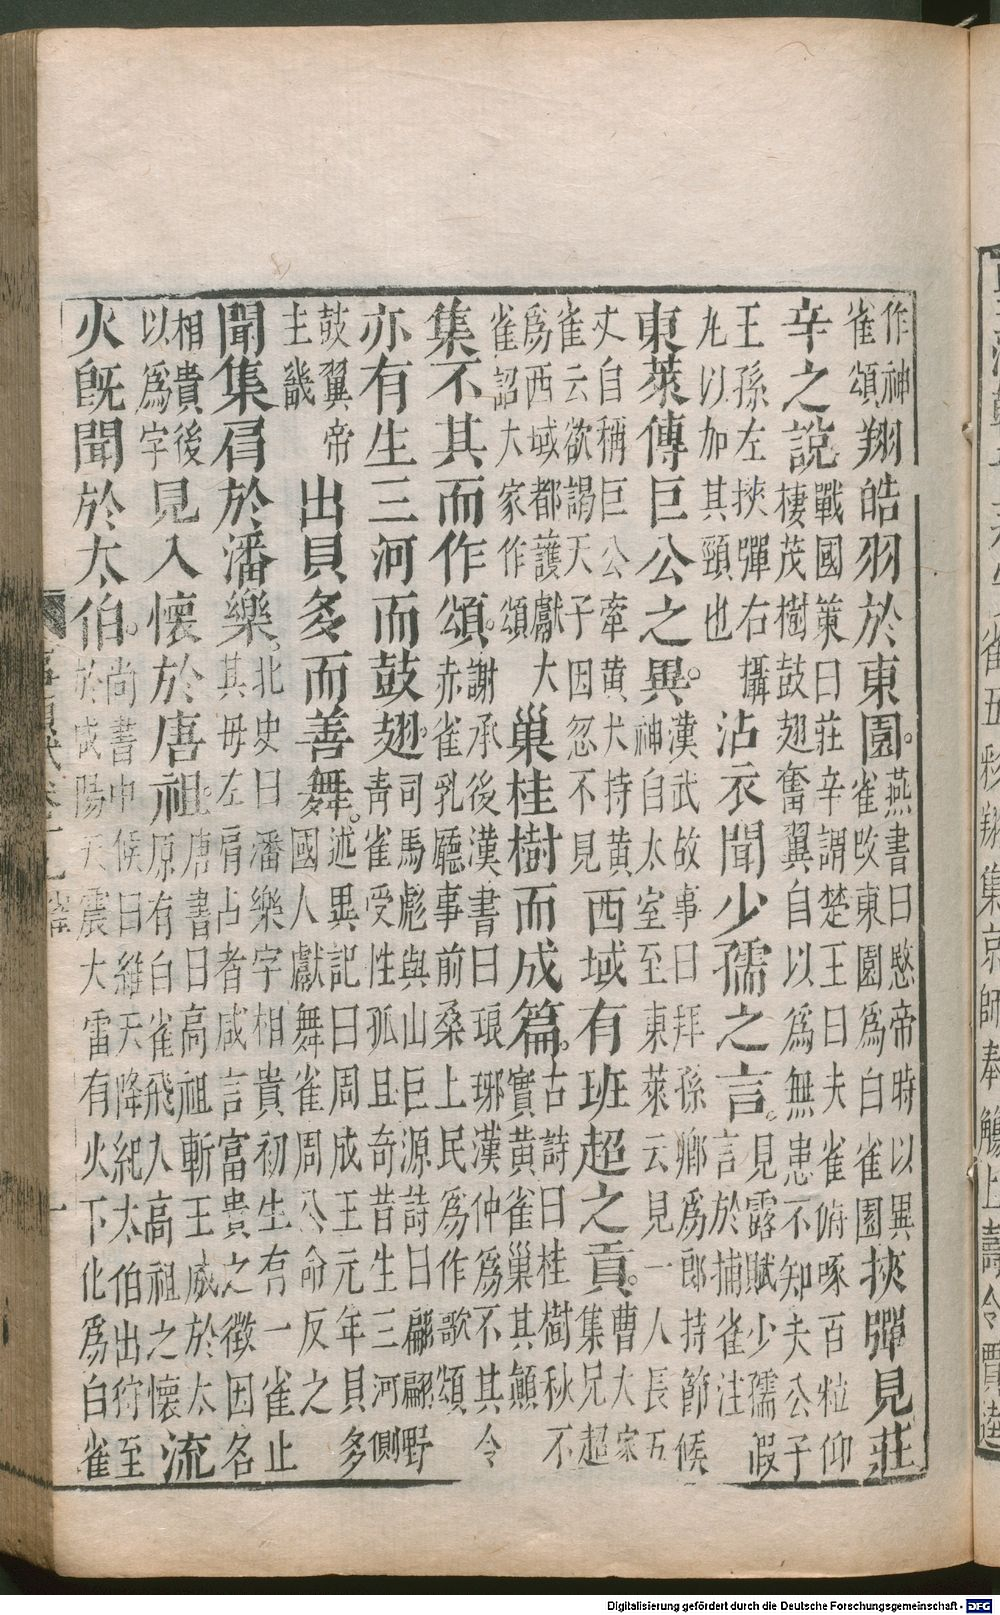 雀五彩翔集京師奉觴上壽令賈逵
作神雀頌翔皓羽於東園。燕書曰愍帝時以異雀攺東園爲白雀園挾彈見莊
辛之說戰國策曰莊辛謂楚王曰夫雀俯啄百粒仰棲茂樹鼓翅奮翼自以爲無患不知夫公子
王孫左挾彈右攝丸以加其頸也沾衣聞少孺之言。見露賦少孺假言於捕雀注
東萊傳巨公之異。漢武故事曰拜孫鄉爲郎持節候神自太室至東萊云見一人長五
丈自稱巨公牽黃犬持黃雀云欲謁天子因忽不見西域有班超之貢。曹大家集兄超
爲西域都護獻大雀詔大家作頌巢桂樹而成篇。古詩曰桂樹秋不實黃雀巢其顚
集不其而作頌。謝承後漢書曰琅琊漢仲爲不其令赤雀乳廳事前桑上民爲作歌頌
亦有生三河而鼓翅。司馬彪與山巨源詩曰翩翩野青雀受性孤且奇昔生三河側
鼓翼帝主畿出貝多而善舞。述異記曰周成王元年貝多國人獻舞雀周公命反之
聞集肩於潘樂。北史曰潘樂字相貴初生有一雀止其母左肩占者咸言富貴之徵因名
相貴後以爲字見入懷於唐祖。唐書曰高祖斬王威於太原有白雀飛入高祖之懷流
火旣聞於太伯。尚書中候曰維天降紀太伯出狩至於咸陽天震大雷有火下化爲白雀
Digitalisierung gefördert durch die Deutsche Forschungsgemeinschaft - DFG